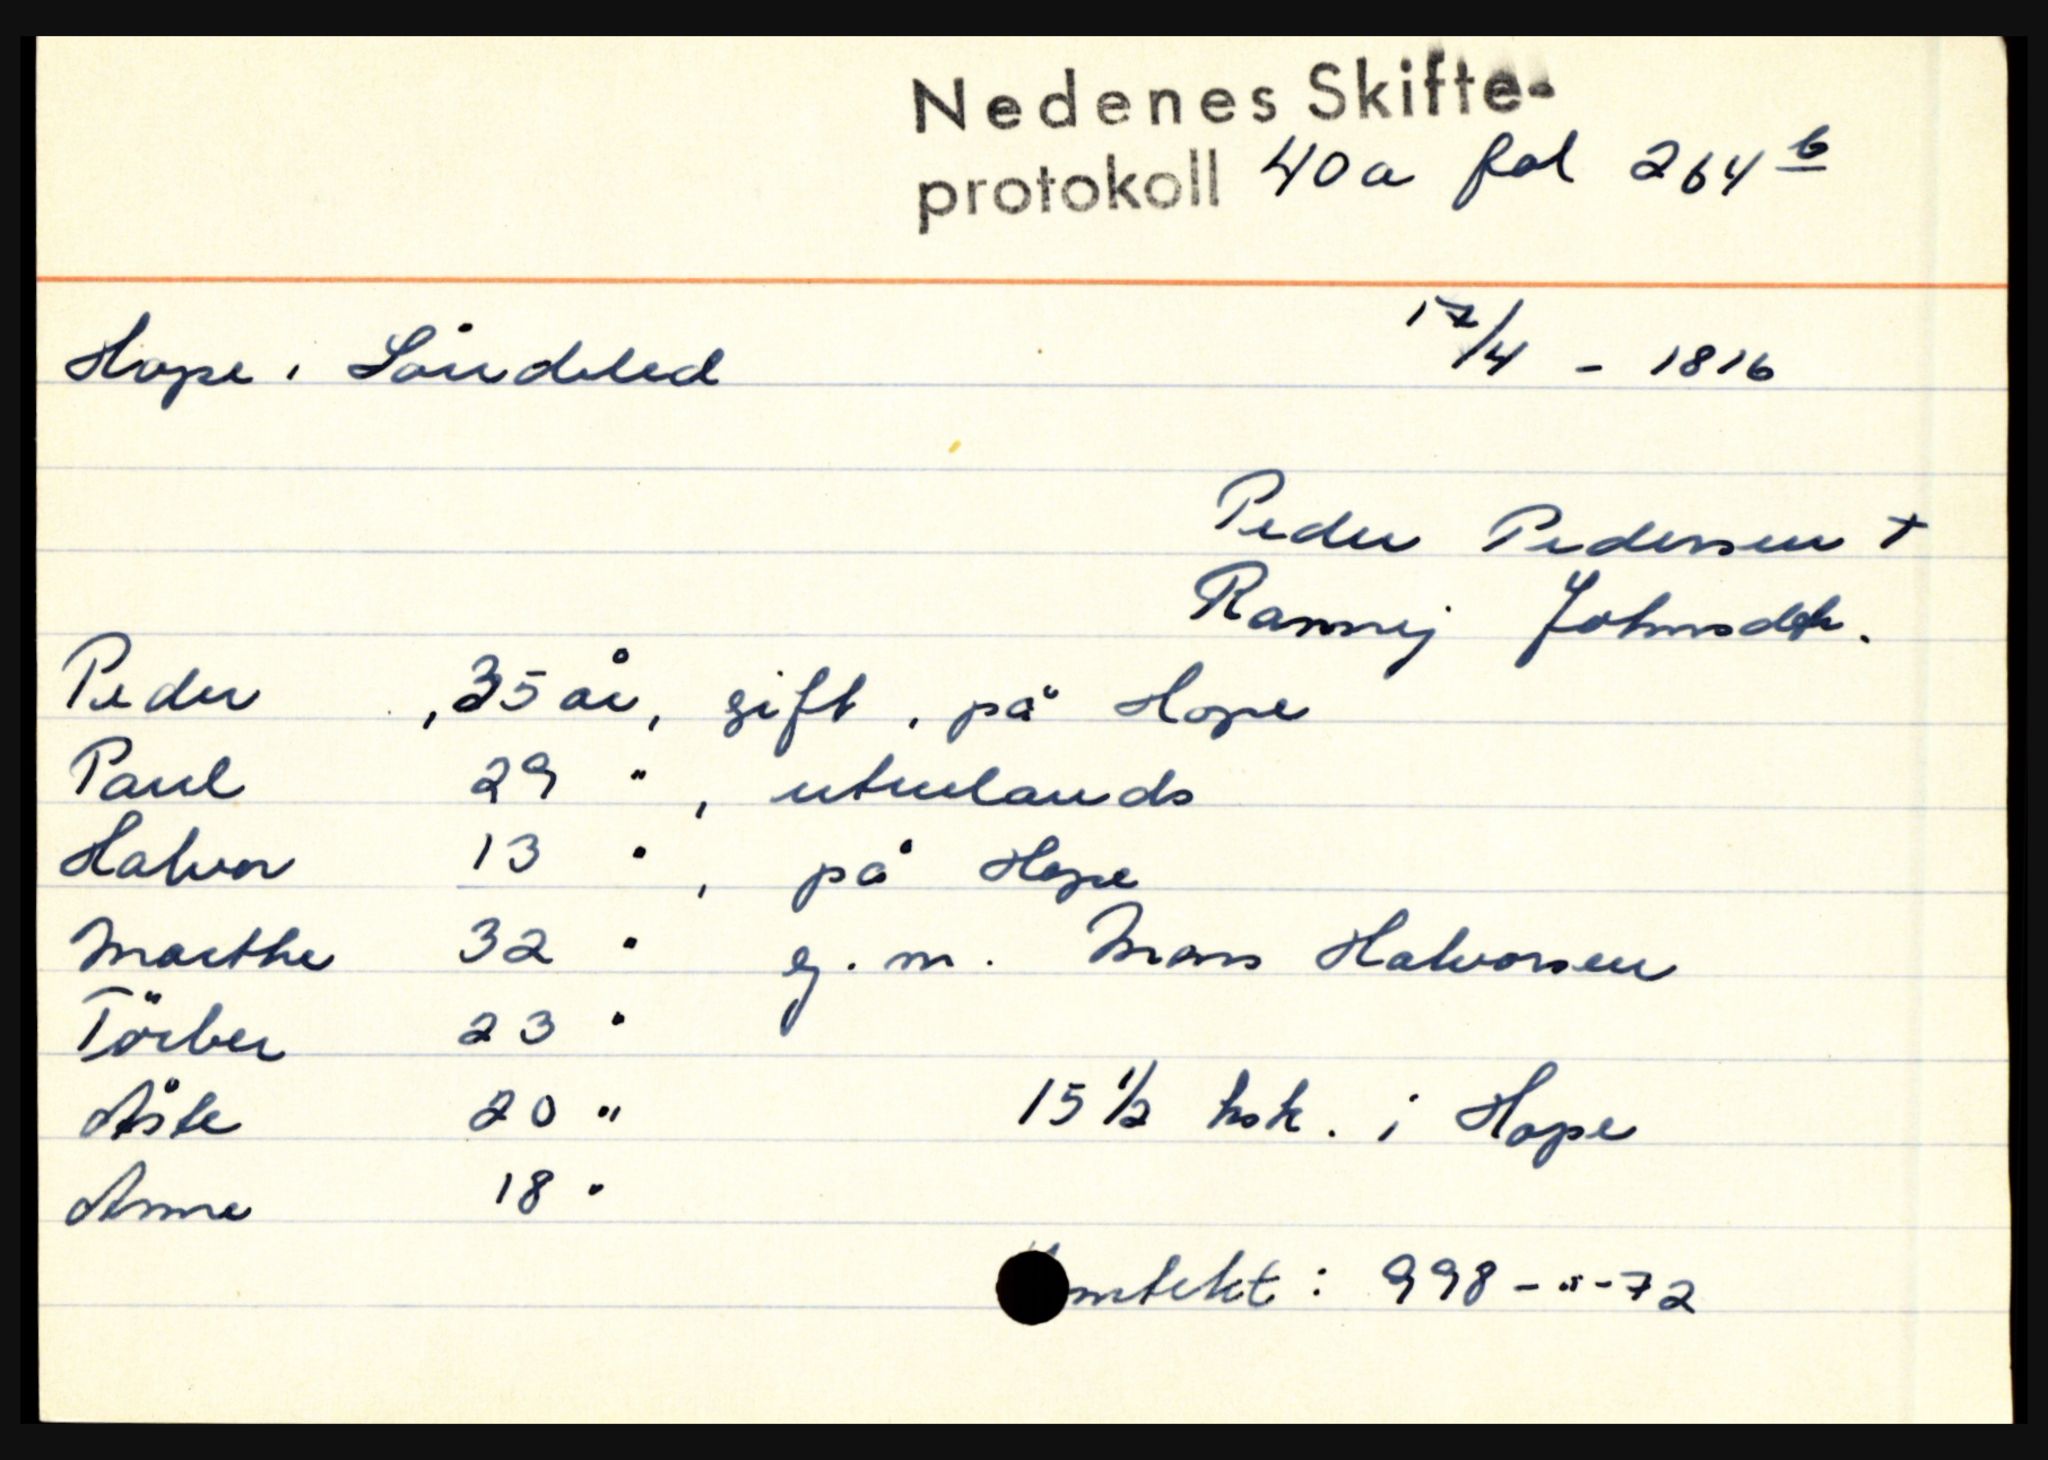 Nedenes Skifte-
protokoll 40a fol 264 b
Hope, Söndeled 17/4 - 1816
Peder Pedersen +
Rannej Johnsdtr.
Peder , 35 år, gift, på Hope
Paul 29 " , utenlands
Halvor 13 " , på Hope
Marthe 32 " g. m. Mons Halvorsen
Törber 23 "
Åste 20 " 15 1/2 ksk. i Hope
Anne 18 "
Inntekt : 998 - " - 72